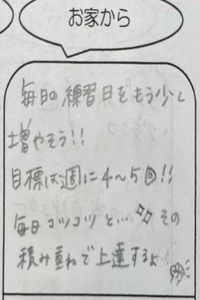 お家から
毎日の練習日をもう少し
増やそう!!
目標は週に4〜5回!!
毎日コツコツと… その
積み重ねで上達するよ